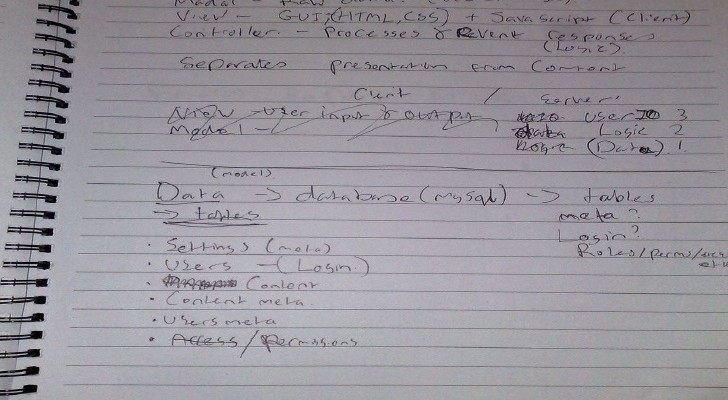 View - GUI, (HTML, CSS) + Javascript (Client)
Controller. - Processes & Event responses
(Logic)
Separates presentation from Content
Client / Server.
View - User input & output User IO 3
Model - Logic 2
(Data) 1.
(model)
Data -> database (mysql) -> tables
-> tables meta?
Login?
• Settings (meta) Roles/perms/
• Users - (Login)
• Content
• Content meta.
• Users meta
• Access / Permissions